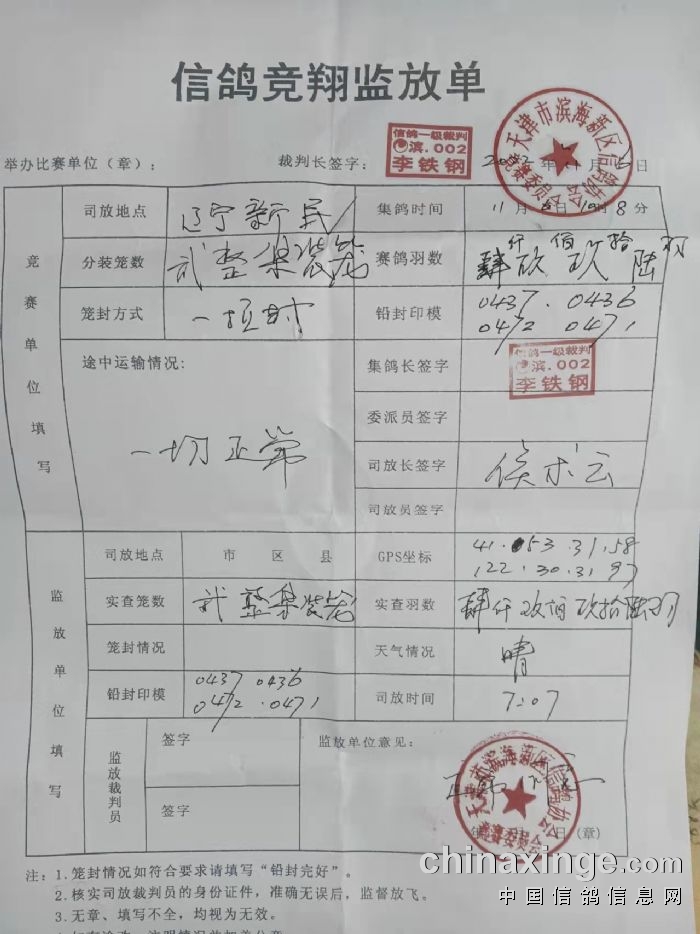 信鸽竞翔监放单
举办比赛单位（章）： 裁判长签字：
信鸽一级裁判
滨.002
李铁钢
天津市滨海新区信鸽协会
竞赛委员会
竞赛单位填写
司放地点 辽宁新民 集鸽时间 11月 日 8分
分装笼数 贰整集装笼 赛鸽羽数 肆仟玖佰玖拾陆羽
笼封方式 一项封 铅封印模 0437. 0436
0472 0471
途中运输情况: 集鸽长签字
信鸽一级裁判
滨.002
李铁钢
委派员签字
一切正常 司放长签字
司放员签字
监放单位填写
司放地点 市 区 县 GPS坐标 41. 53.31.58
122.30.31.97
实查笼数 贰整集装笼 实查羽数 肆仟玖佰玖拾陆羽
笼封情况 天气情况 晴
铅封印模 0437 0436
0472.0471 司放时间 7:07
监放裁判员 签字 监放单位意见：
签字
天津市滨海新区信鸽协会
竞赛委员会
年 日（章）
注：1.笼封情况如符合要求请填写“铅封完好”。
2.核实司放裁判员的身份证件，准确无误后，监督放飞。
3.无章、填写不全，均视为无效。
chinaxinge.com
中国信鸽信息网